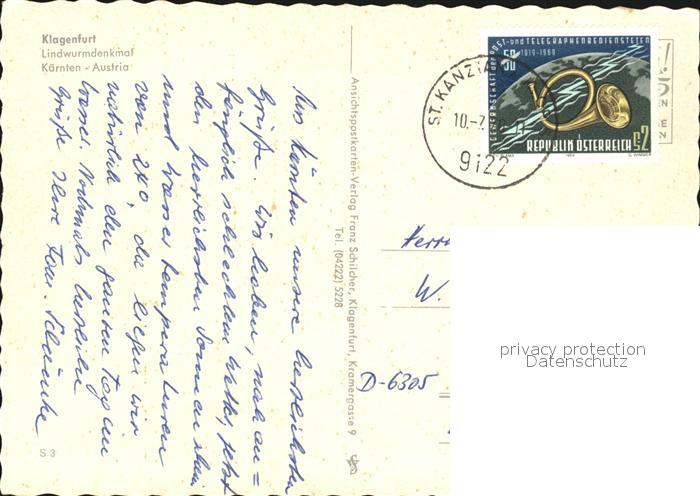 Klagenfurt
Lindwurmdenkmal
Kärnten - Austria
Aus Kärnten unsere herzlichsten
Grüße. Wir haben, nach an=
fänglich schlechtem Wetter, jetzt
den herrlichsten Sonnenschein
und Wassertemperaturen
von 24°, da liegen wir
natürlich den ganzen Tag im
Wasser. Nochmals herzliche
Grüße Ihre Fam.
S 3
Ansichtspostkarten-Verlag Franz Schilcher, Klagenfurt, Kramergasse 9
Tel. (04222) 5228
GEWERKSCHAFT der POST- und TELEGRAPHENBEDIENSTETEN
1919-1969
S 2
REPUBLIK ÖSTERREICH
1969
G. WIMMER
ST. KANZIA
10.-7.
9122
Herrn
W.
D-6305
privacy protection
Datenschutz